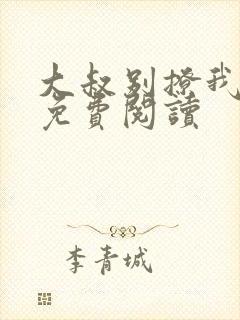 大叔别撩我
免費閱讀
李青城